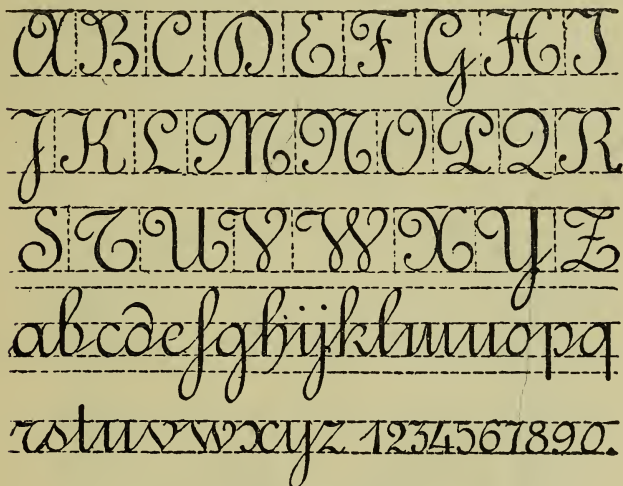 ABCDEFGHI
JKLMNOPQR
STUVWXYZ
abcdefghijklmnopq
rstuvwxyz 1234567890.